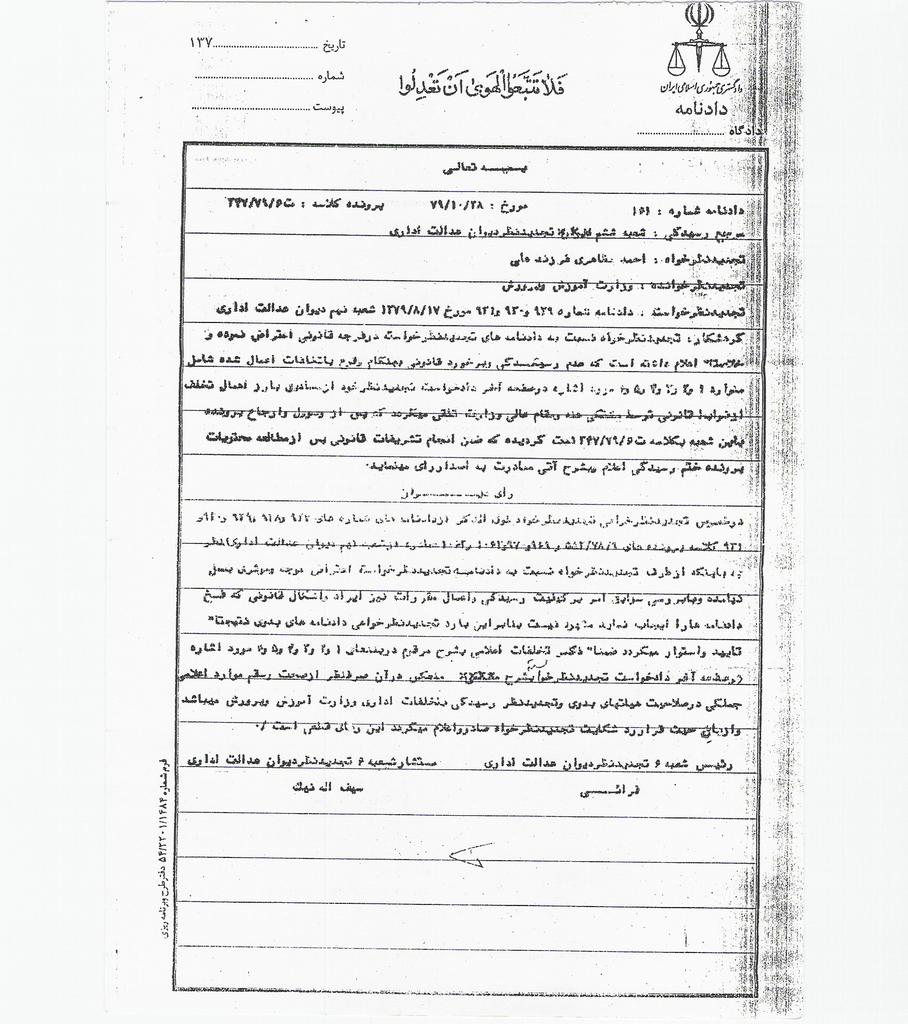 تاریخ ............ ۱۳۷
شماره ............
پیوست ............
فَلا تَتَّبِعُوا الْهَوىٰ اَنْ تَعْدِلُوا
دادگستری جمهوری اسلامی ایران
دادنامه
دادگاه ............
بسمه تعالی
دادنامه شماره : ۱۶۱ مورخ : ۷۹/۱۰/۲۸ پرونده کلاسه : ت۳۴۷/۷۹/۶
مرجع رسیدگی : شعبه ششم تجدیدنظر دیوان عدالت اداری
تجدیدنظرخواه : احمد مظاهری فرزند علی
تجدیدنظرخوانده : وزارت آموزش و پرورش
تجدیدنظرخواسته : دادنامه شماره ۹۲۹ و ۹۳۰ و ۹۳۱ مورخ ۱۳۷۹/۸/۱۷ شعبه نهم دیوان عدالت اداری
گردشکار: تجدیدنظرخواه نسبت به دادنامه های تجدیدنظرخواسته درفرجه قانونی اعتراض نموده و
خلاصتا" اعلام داشته است که عدم رسیدگی وبرخورد قانونی بهنگام وقوع باتخلفات اعمال شده شامل
موارد ۱ و ۲ و ۳ و ۴ و ۵ مورد اشاره درصفحه آخر دادخواست تجدیدنظرخود ازمصادیق بارز اهمال تخلف
ازضوابط قانونی توسط مقام عالی وزارت تلقی میگردد که پس از وصول وارجاع پرونده
باین شعبه بکلاسه ت۳۴۷/۷۹/۶ ثبت گردیده که ضمن انجام تشریفات قانونی پس ازمطالعه محتویات
پرونده ختم رسیدگی اعلام وبشرح آتی مبادرت به اصداررای مینماید.
رای دیوان
درخصوص تجدیدنظرخواهی تجدیدنظرخواه فوق الذکر ازدادنامه های شماره های و ۹۲۸ و ۹۲۹ و ۹۳۰ و
۹۳۱ کلاسه پرونده های صادره ازشعبه نهم دیوان عدالت اداری نظر
به باینکه ازطرف تجدیدنظرخواه نسبت به دادنامه تجدیدنظرخواسته اعتراض موجه وموثری بعمل
نیامده وبابررسی سوابق امر برکیفیت رسیدگی واعمال مقررات نیز ایراد واشکال قانونی که فسخ
دادنامه هارا ایجاب نماید مشهود نیست بنابراین بارد تجدیدنظرخواهی دادنامه های بدوی نتیجتا"
تایید واستوار میگردد ضمنا" ذکر تخلفات اعلامی بشرح مرقوم دربندهای ۱ و ۲ و ۳ و ۴ و ۵ مورد اشاره
درصفحه آخر دادخواست تجدیدنظرخواه بشرح منعکس درآن صرفنظر ازصحت وسقم موارد اعلامی
جملگی درصلاحیت هیاتهای بدوی وتجدیدنظر رسیدگی بتخلفات اداری وزارت آموزش وپرورش میباشد
وازاین حیث قراررد شکایت تجدیدنظرخواه صادرواعلام میگردد این رای قطعی است ./
رئیس شعبه ۶ تجدیدنظردیوان عدالت اداری مستشارشعبه ۶ تجدیدنظردیوان عدالت اداری
فرائسی سیف اله نیک
فرم شماره ۵۴/۲۲۰۱/۱۴۸۴ دفترطرح وبرنامه ریزی